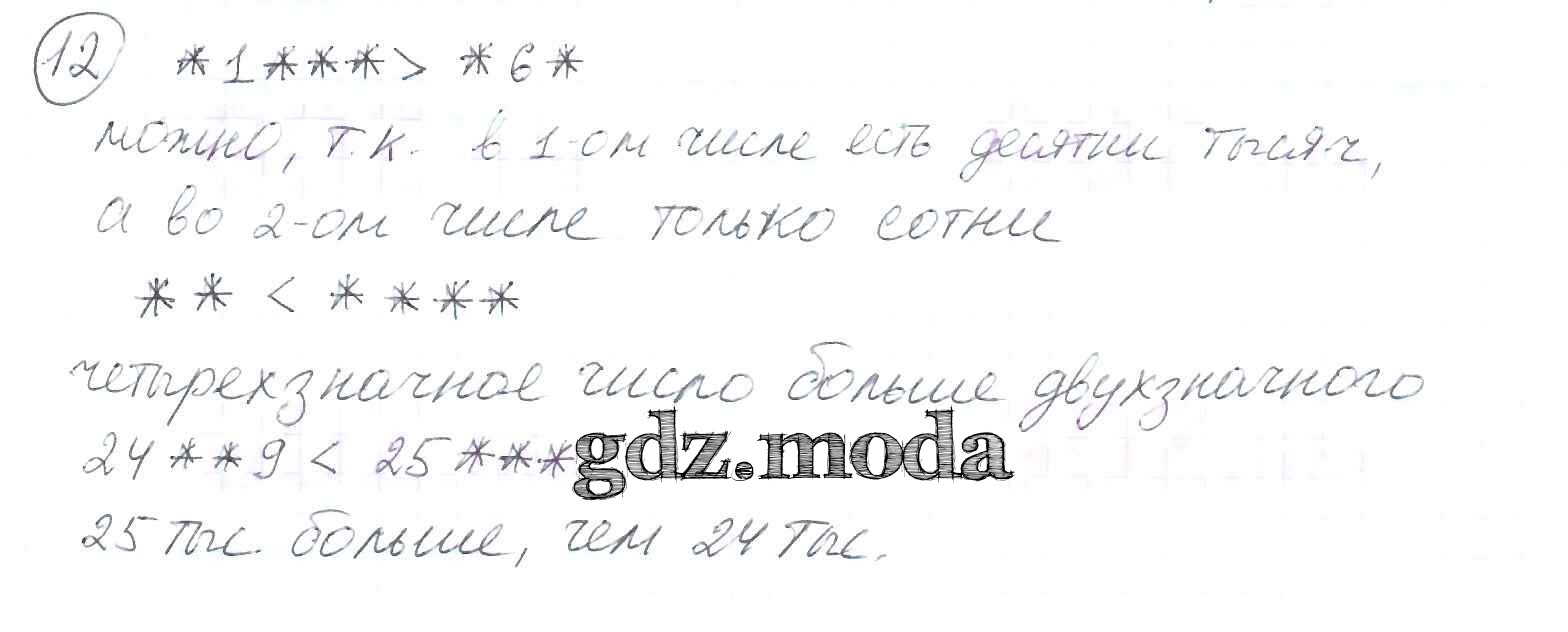 12 *1***> *6*
можно, т.к. в 1-ом числе есть десятки тысяч,
а во 2-ом числе только сотни
** < ****
четырехзначное число больше двухзначного
24**9 < 25***
gdz.moda
25 тыс. больше, чем 24 тыс.